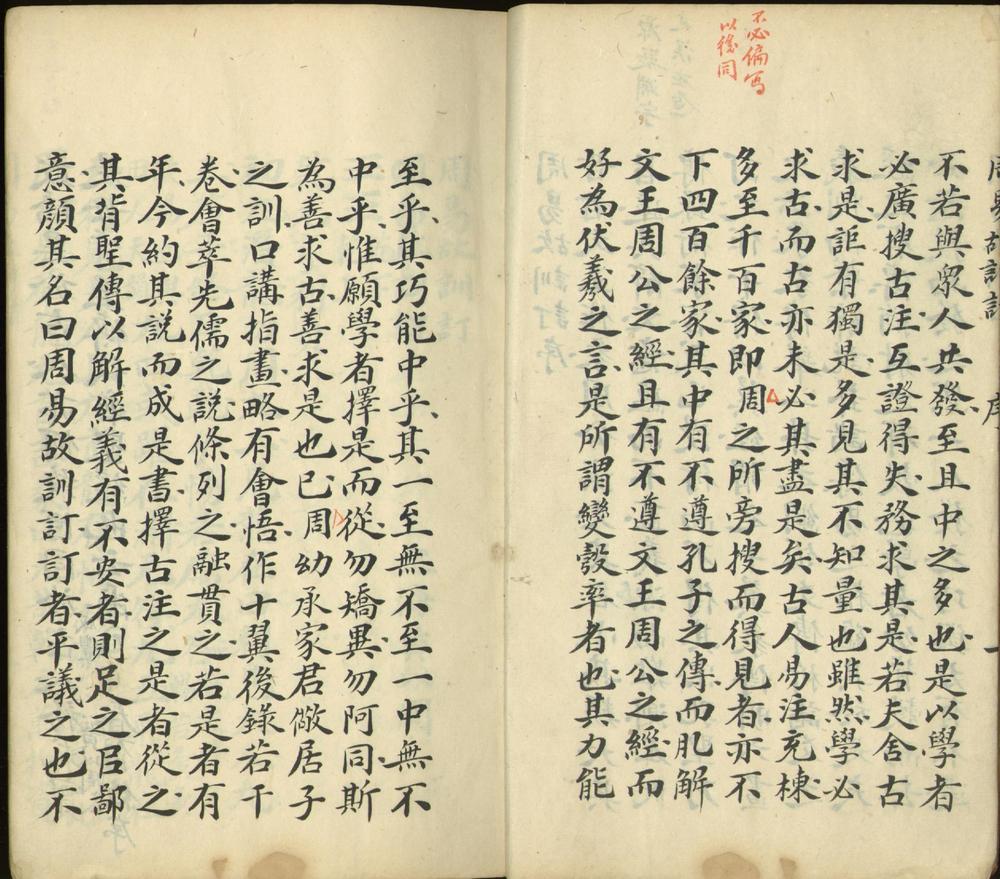 不必偏写
以後同
周易故訓訂 序 一
不若與眾人共發至且中之多也是以學者
必廣搜古注互證得失務求其是若夫舍古
求是詎有獨是多見其不知量也雖然學必
求古而古亦未必其盡是矣古人易注充棟
多至千百家即周之所旁搜而得見者亦不
下四百餘家其中有不遵孔子之傳而肊解
文王周公之經且有不遵文王周公之經而
好為伏羲之言是所謂變彀率者也其力能
至乎其巧能中乎其一至無不至一中無不
中乎惟願學者擇是而從勿矯異勿阿同斯
為善求古善求是也已周幼承家君儆居子
之訓口講指畫略有會悟作十翼後錄若干
卷會萃先儒之說條列之融貫之若是者有
年今約其說而成是書擇古注之是者從之
其背聖傳以解經義有不安者則足之㠯鄙
意顏其名曰周易故訓訂訂者平議之也不